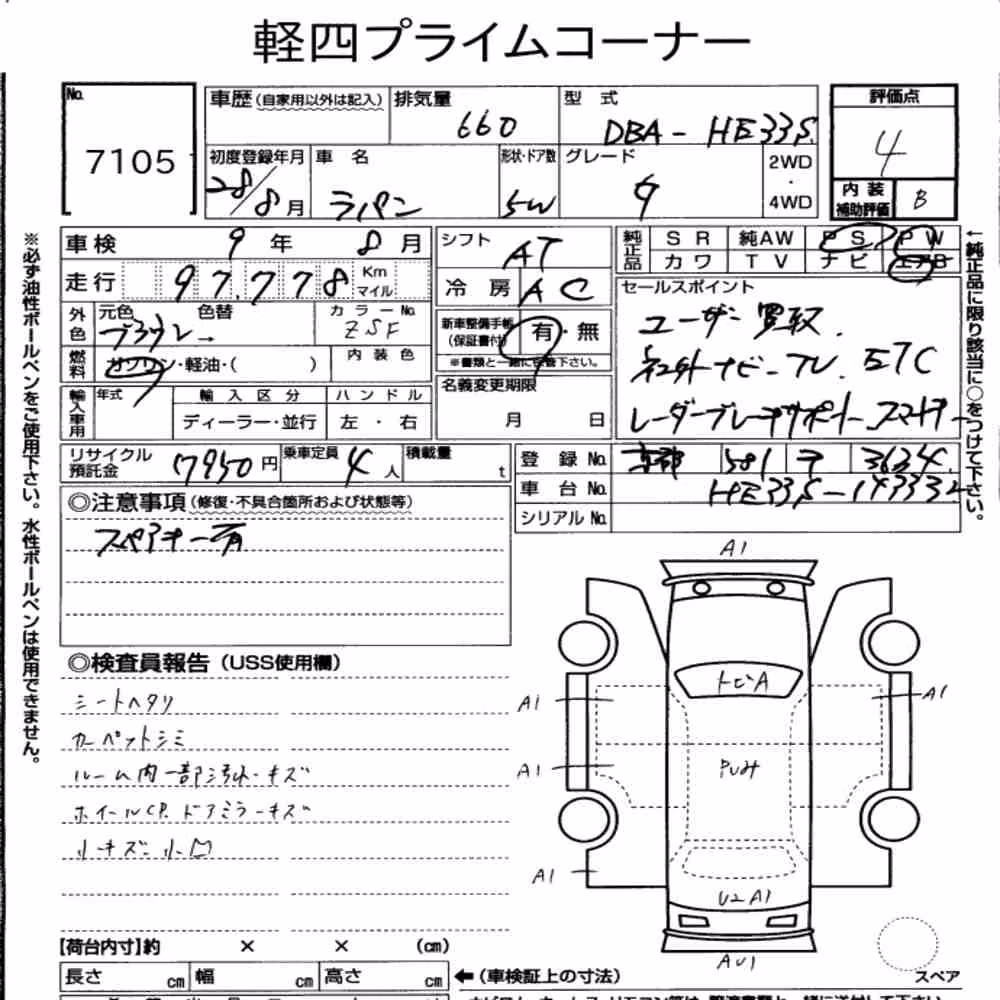 軽四プライムコーナー
No. 7105
車歴(自家用以外は記入)
排気量 660
型式 DBA-HE33S
評価点 4
初度登録年月 28/8月
車名 ラパン
形状・ドア数 5W
グレード G
2WD・4WD
内装補助評価 B
車検 9年 8月
シフト AT
純正品 SR 純AW PS PW
カワ TV ナビ エアB
走行 97.778 Km マイル
冷房 AC
外色 元色 ブラウン 色替
カラーNo. ZSF
新車整備手帳(保証書付) 有・無
※書類と一緒に管理下さい。
燃料 ガソリン・軽油・( )
内装色
名義変更期限 月 日
セールスポイント
ユーザー買取.
ネット外ナビ-TV. ETC
レーダーブレーキサポート スマートキー
輸入車用 年式
輸入区分 ディーラー・並行
ハンドル 左・右
リサイクル預託金 7950円
乗車定員 4人
積載量 t
登録No. 京都 581 3634
車台No. HE33S-143332
シリアルNo.
◎注意事項(修復・不具合箇所および状態等)
スペアキー有
◎検査員報告(USS使用欄)
シートヘタリ
カーペットシミ
ルーム内一部汚れ・キズ
ホイールCP. ドアミラーキズ
小キズ 小凹
A1
トビA
A1
A1
A1
A1
U2 A1
AU1
スペア
【荷台内寸】約 × × (cm)
長さ cm 幅 cm 高さ cm
←(車検証上の寸法)
※必ず油性ボールペンをご使用下さい。水性ボールペンは使用できません。
←純正品に限り該当に○をつけて下さい。